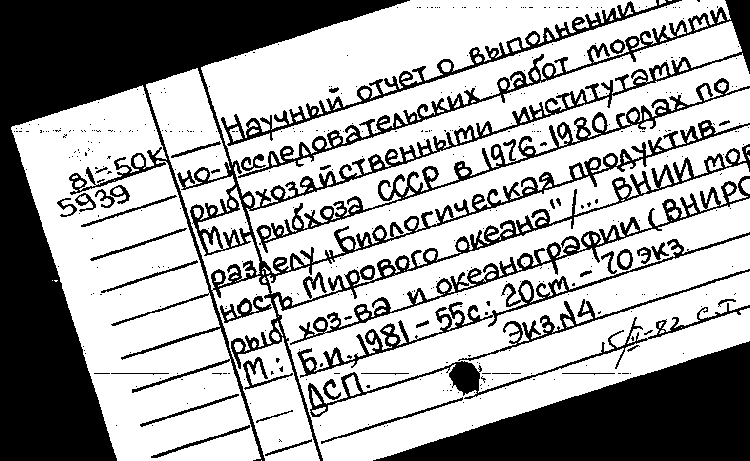 Научный отчет о выполнении
81-50К
5939
но-исследовательских работ морскими
рыбохозяйственными институтами
Минрыбхоза СССР в 1976-1980 годах по
разделу „Биологическая продуктив-
ность Мирового океана"/... ВНИИ мор
рыб. хоз-ва и океанографии (ВНИРО
М.: Б.и., 1981.- 55с.; 20см.- 70 экз.
ДСП. Экз.N4.
С.Т.